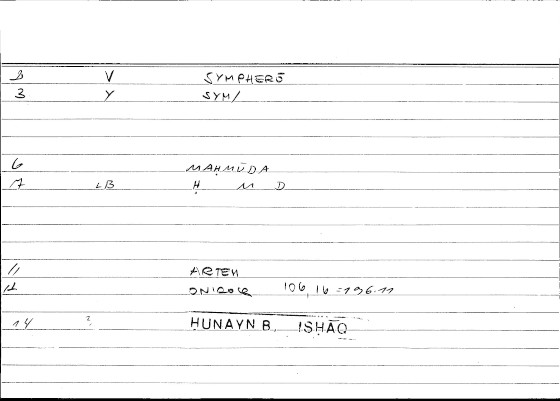 3 V SYMPHERŌ
3 Y SYM/
6 MAḤMŪDA
17 LB Ḥ M D
11 ARTEM
ONIROCR 106, 16 = 196.11
14 ? ḤUNAYN B. ISḤĀQ